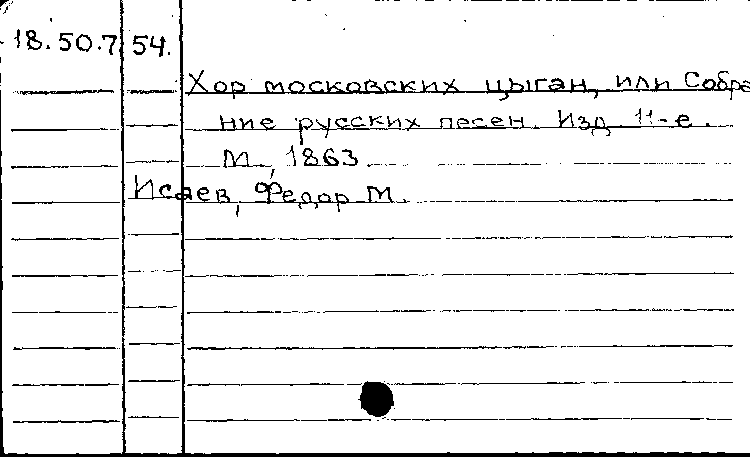 18.50.7.54.
Хор московских цыган, или Собра
ние русских песен. Изд 11-е.
М., 1863
Исаев, Федор М.